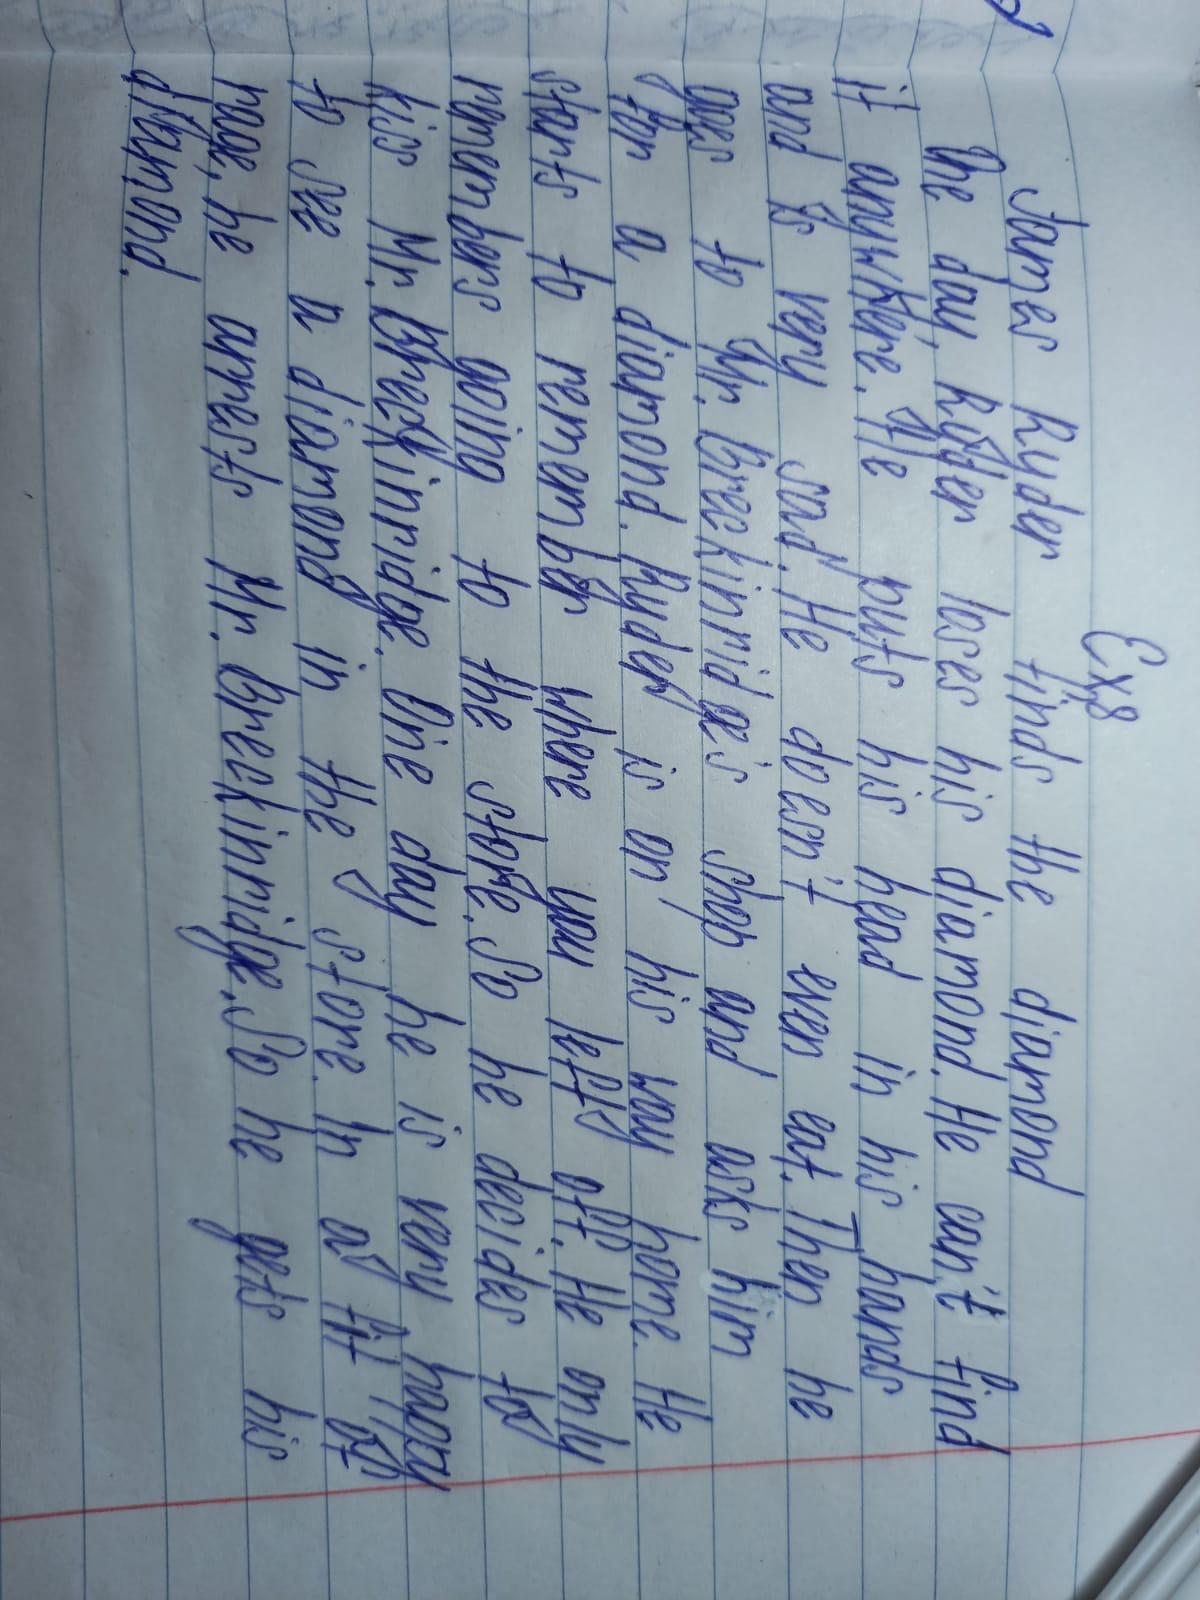 Ex8
James Ryder finds the diamond
One day, Ryder loses his diamond. He can't find
it anywhere. He puts his head in his hands
and is very sad. He doesn't even eat. Then he
goes to Mr. Breckinridge's shop and asks him
for a diamond. Ryder is on his way home. He
starts to remember where you left off. He only
remembers going to the store. So he decides to
kiss Mr. Breckinridge. One day he is very happy
to see a diamond in the store. In a fit of
rage, he arrests Mr. Breckinridge. So he gets his
diamond.